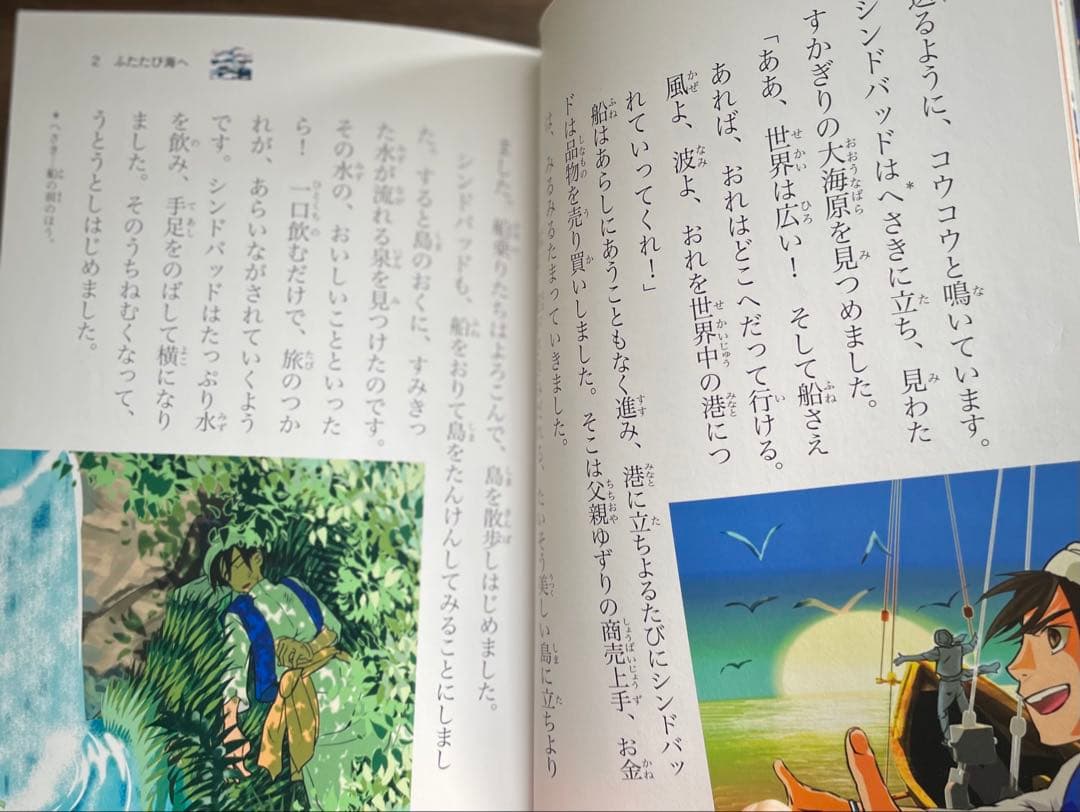 るように、コウコウと鳴いています。
シンドバッドはへさきに立ち、見わた
すかぎりの大海原を見つめました。
「ああ、世界は広い！　そして船さえ
あれば、おれはどこへだって行ける。
風よ、波よ、おれを世界中の港につ
れていってくれ！」
船はあらしにあうこともなく進み、港に立ちよるたびにシンドバッ
ドは品物を売り買いしました。そこは父親ゆずりの商売上手、お金
は、みるみるたまっていきました。
たいそう美しい島に立ちより
ました。船乗りたちはよろこんで、島を散歩しはじめました。
シンドバッドも、船をおりて島をたんけんしてみることにしまし
た。すると島のおくに、すみきっ
た水が流れる泉を見つけたのです。
その水の、おいしいことといった
ら！　一口飲むだけで、旅のつか
れが、あらいながされていくよう
です。シンドバッドはたっぷり水
を飲み、手足をのばして横になり
ました。そのうちねむくなって、
うとうとしはじめました。
*へさき…船の前のほう。
2　ふたたび海へ